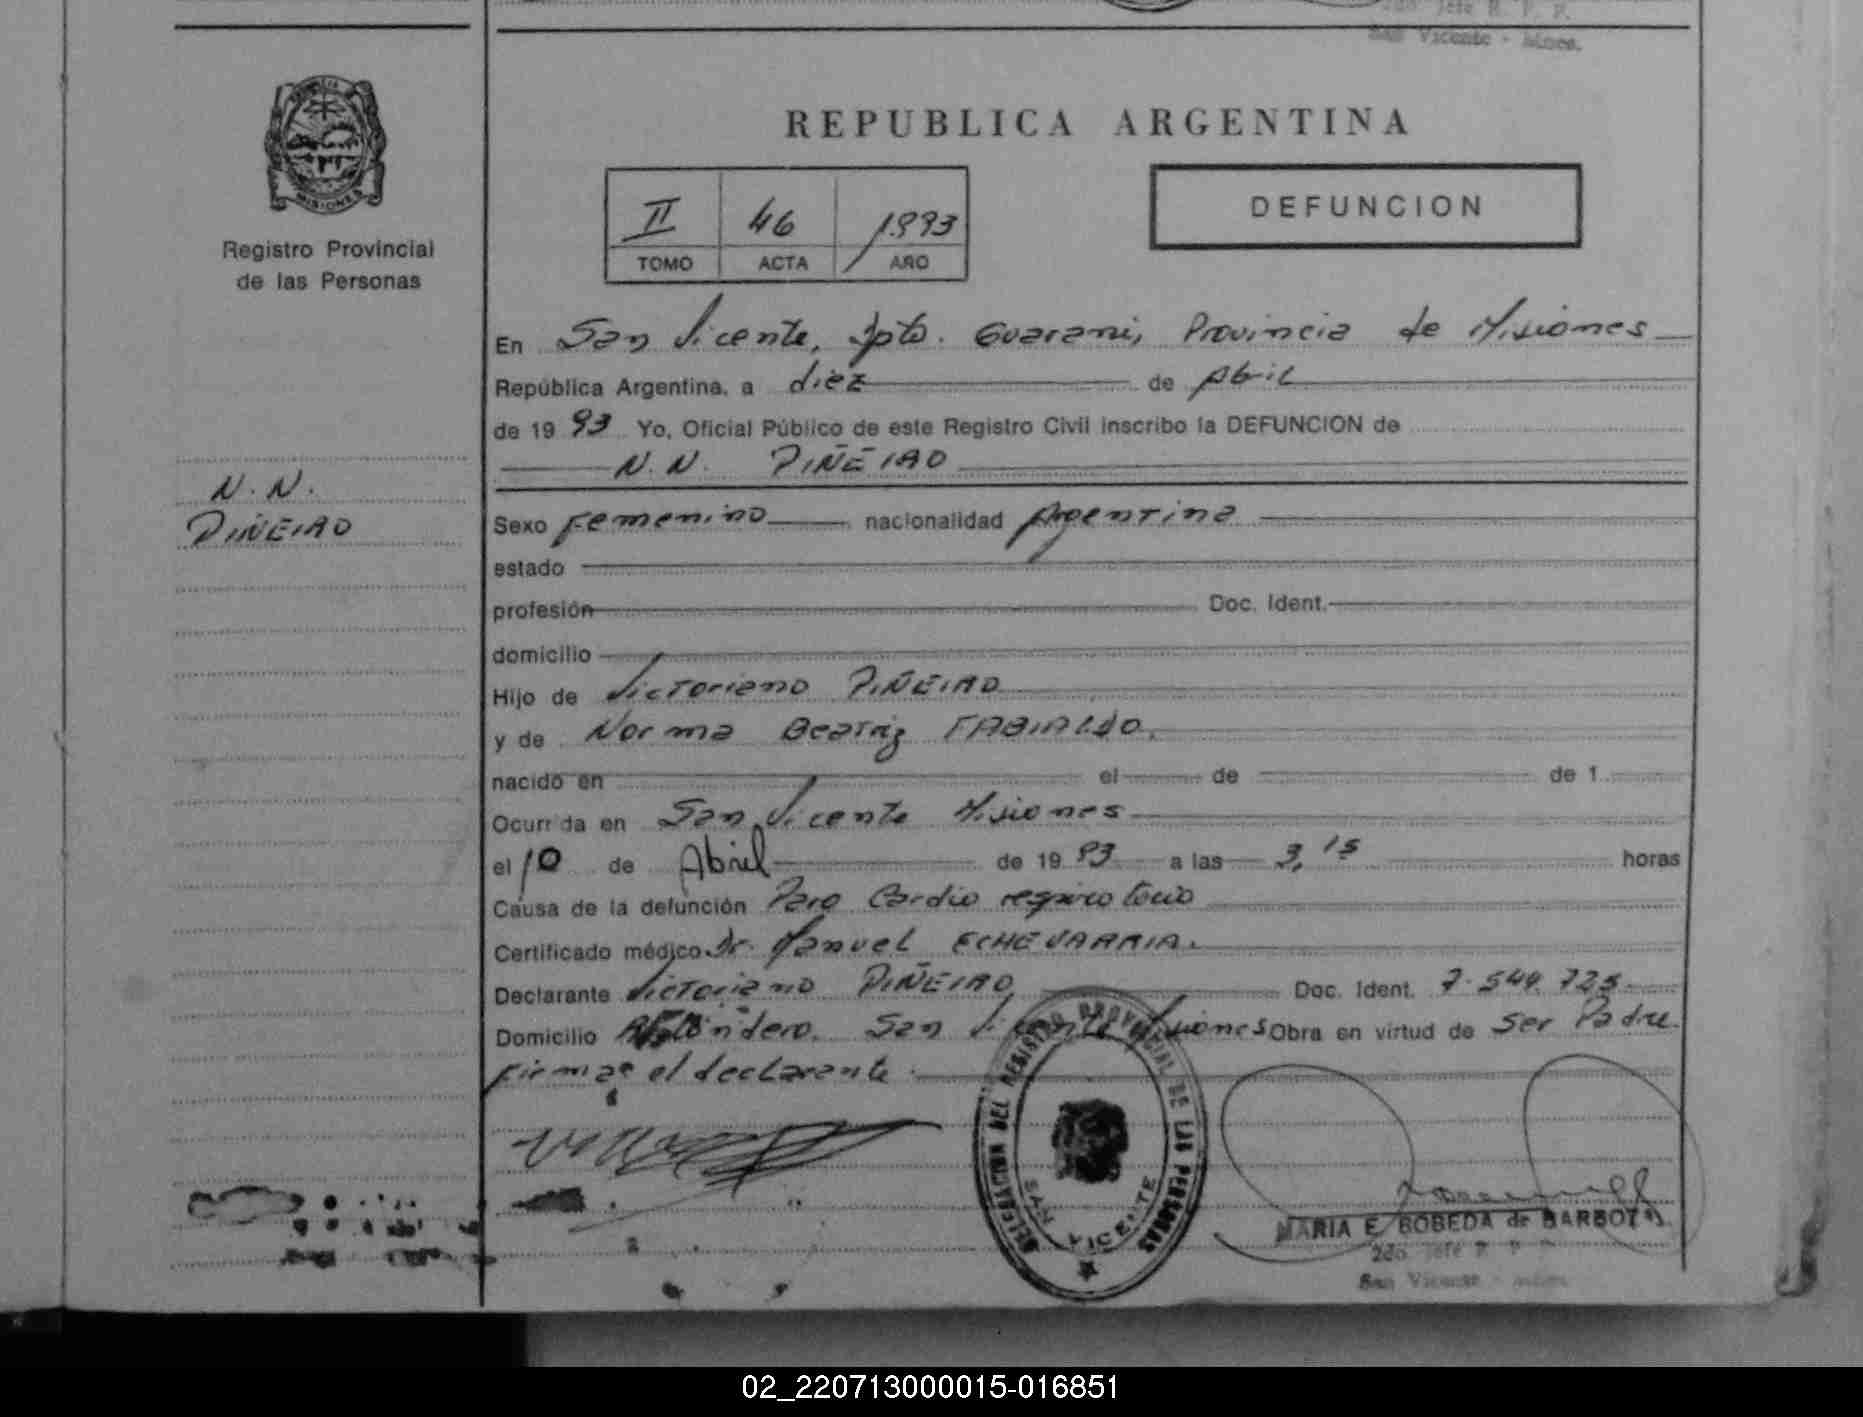 San Vicente - Mnes.
PROVINCIA DE
MISIONES
Registro Provincial
de las Personas
REPUBLICA ARGENTINA
II 46 1993
TOMO ACTA AÑO
DEFUNCION
En San Vicente, Dpto. Guarani, Provincia de Misiones
República Argentina, a diez de Abril
de 1993 Yo, Oficial Público de este Registro Civil inscribo la DEFUNCION de
N.N. PIÑEIRO
N.N.
PIÑEIRO
Sexo Femenino nacionalidad Argentina
estado
profesión Doc. Ident.
domicilio
Hijo de Victoriano PIÑEIRO
y de Norma Beatriz
nacido en el de de 1
Ocurrida en San Vicente Misiones
el 10 de Abril de 1993 a las 3,15 horas
Causa de la defunción Paro Cardio respiratorio
Certificado médico Dr. Manuel ECHEVARRIA.
Declarante Victoriano PIÑEIRO Doc. Ident. 7.544.725
Domicilio San Vicente Misiones Obra en virtud de Ser Padre
Firma el declarante.
DELEGACION DEL REGISTRO PROVINCIAL DE LAS PERSONAS
SAN VICENTE
MARIA E. BOBEDA de BARBOZA
2do. Jefe R. P. P.
San Vicente - Mnes.
02_220713000015-016851